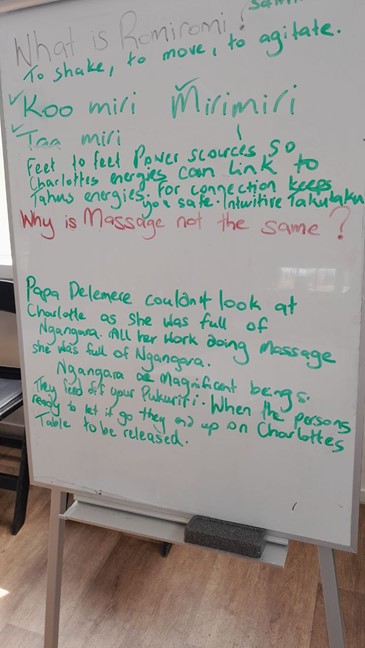 What is Romiromi?
To shake, to move, to agitate.
Koo miri Mirimiri
Taa miri
Feet to feet Power scources so
Charlottes energies can link to
Tahus energies. For connection keeps
you safe. Intuitive Takutaku
Why is Massage not the same?
Papa Delemere couldnt look at
Charlotte as she was full of
Ngangara. All her work doing Massage
she was full of Ngangara.
Ngangara are Magnificant beings.
They feed off your Pukuriri. When the persons
ready to let it go they end up on Charlottes
Table to be released.